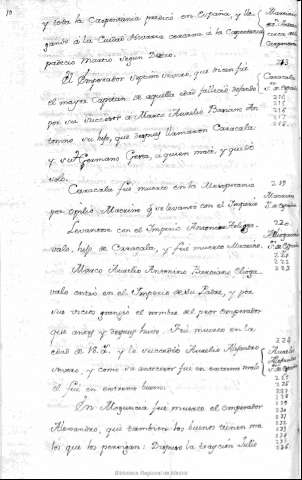 y toda la Carpentania predicó en España, y lle
gando á la Ciudad Nivaria cercana á la Carpentania
padecio Martirio segun Dextro.
El Emperador Septimo Severo, que dicen fué
el mayor Capitan de aquella edad falleció dejando
por su successor á Marco Aurelio Basiano An
tonino su hijo, que despues llamaron Caracala
y su Hermano Geta, a quien mató, y quedó
solo.
Caracala fué muerto en la Mesopotamia
por Opilio Macrino q. se levantó con el Imperio
Levantose con el Imperio Antonino Heliogo
valo, hijo de Caracala, y fué muerto Macrino.
Marco Aurelio Antonino Basiano Elioga
valo entró en el Imperio de su Padre, y por
sus vicios grangeó el nombre del peor emperador
que antes y despues hubo. Fué muerto en la
edad de 18. y le succedió Aurelio Alejandro
Severo, y como su antecesor fué en extremo malo
el fué en extremo bueno.
En Moguncia fué muerto el emperador
Alexandro, que tambien los buenos tienen ma
los que los persigan: Despues la traycion Julio
213
Caracala
219
Macrino
220
222
223
224
Aurelio
Alejandro
Severo
Biblioteca Regional de Madrid